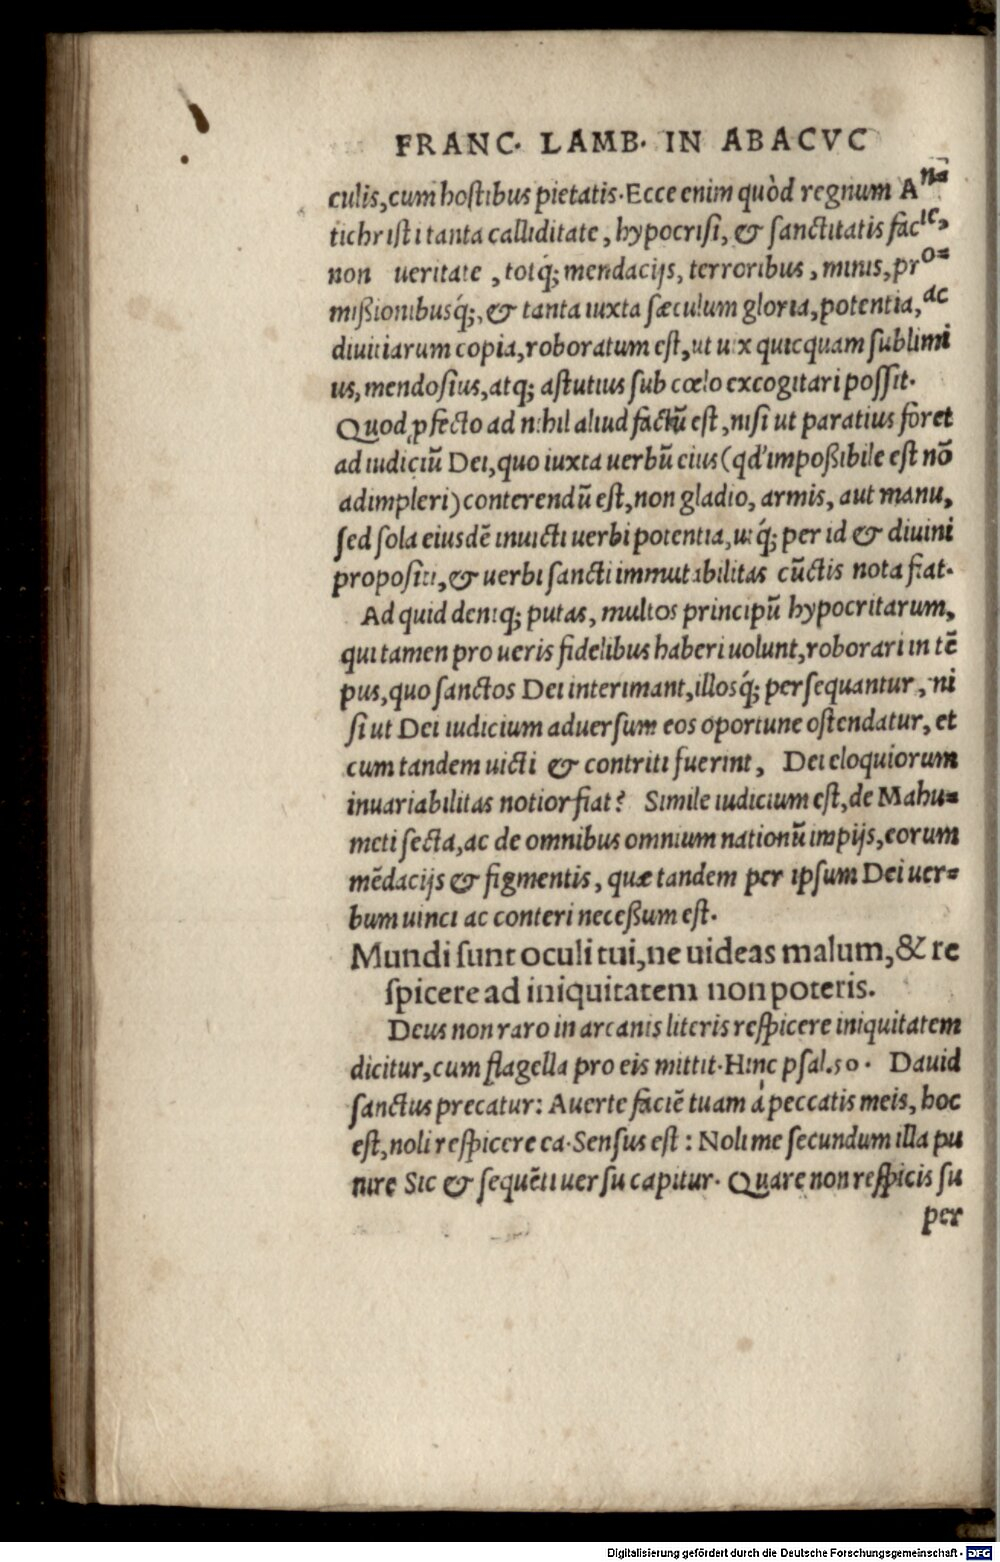 FRANC. LAMB. IN ABACVC
culis, cum hostibus pietatis. Ecce enim quòd regnum An=
tichristi tanta calliditate, hypocrisi, & sanctitatis facie,
non ueritate, totq́; mendacijs, terroribus, minis, pro=
mißionibusq́;, & tanta iuxta sæculum gloria, potentia, ac
diuitiarum copia, roboratum est, ut uix quicquam sublimi
us, mendosius, atq; astutius sub cœlo excogitari possit.
Quod ꝓfecto ad nihil aliud factũ est, nisi ut paratius foret
ad iudiciũ Dei, quo iuxta uerbũ eius (qd' impoßibile est nõ
adimpleri) conterendũ est, non gladio, armis, aut manu,
sed sola eiusdẽ inuicti uerbi potentia, utq́; per id & diuini
propositi, & uerbi sancti immutabilitas cũctis nota fiat.
Ad quid deniq; putas, multos principũ hypocritarum,
qui tamen pro ueris fidelibus haberi uolunt, roborari in tẽ
pus, quo sanctos Dei interimant, illosq́; persequantur, ni
si ut Dei iudicium aduersum eos oportune ostendatur, et
cum tandem uicti & contriti fuerint, Dei eloquiorum
inuariabilitas notior fiat? Simile iudicium est, de Mahu=
meti secta, ac de omnibus omnium nationũ impijs, eorum
mẽdacijs & figmentis, quæ tandem per ipsum Dei uer=
bum uinci ac conteri neceßum est.
Mundi sunt oculi tui, ne uideas malum, & re
spicere ad iniquitatem non poteris.
Deus non raro in arcanis literis respicere iniquitatem
dicitur, cum flagella pro eis mittit. Hinc psal. 50. Dauid
sanctus precatur: Auerte faciẽ tuam á peccatis meis, hoc
est, noli respicere ea. Sensus est: Noli me secundum illa pu
nire Sic & sequẽti uersu capitur. Quare non respicis su
per
Digitalisierung gefördert durch die Deutsche Forschungsgemeinschaft - DFG